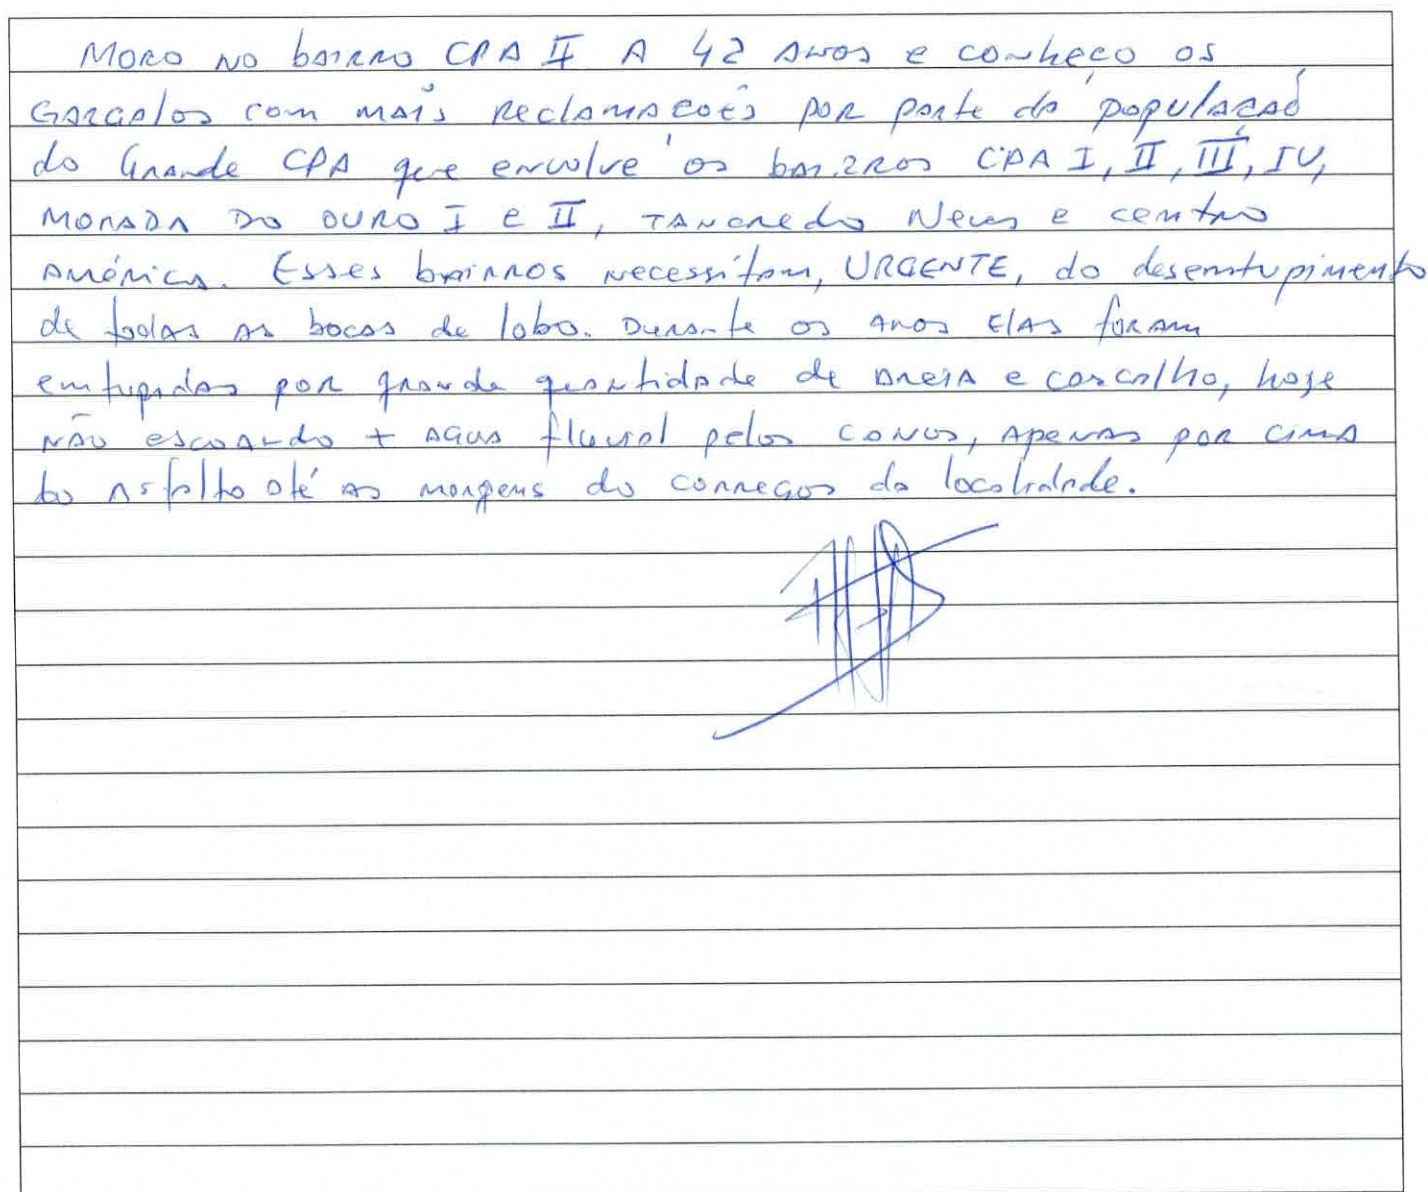 Moro no bairro CPA II A 42 Anos e conheço os
Gargalos com mais Reclamações por parte da população
do Grande CPA que envolve os bairros CPA I, II, III, IV,
MORADA DO OURO I e II, TANCREDO Neves e centro
América. Esses bairros necessitam, URGENTE, do desentupimento
de todas as bocas de lobo. Durante os anos Elas foram
entupidas por grande quantidade de areia e cascalho, hoje
não escoando + agua fluvial pelos canos, apenas por cima
do asfalto até as margens do corregos da localidade.